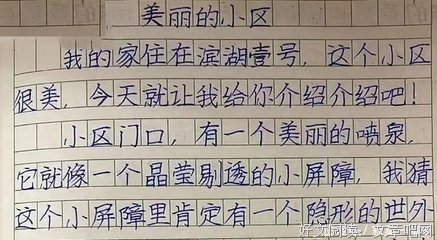 美丽的小区
我的家住在滨湖壹号，这个小区
很美，今天就让我给你介绍介绍吧！
小区门口，有一个美丽的喷泉，
它就像一个晶莹剔透的小屏障，我猜
这个小屏障里肯定有一个隐形的世外